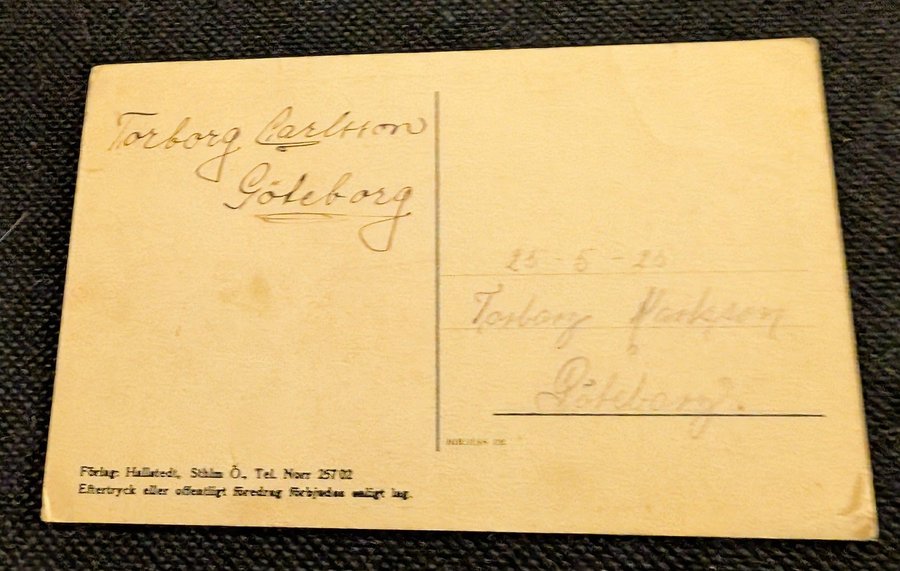 Torborg Carlsson
Göteborg
25-5-25
Torborg
Göteborg.
Förlag: Hallstedt, Sthlm Ö., Tel. Norr 25702
Eftertryck eller offentligt föredrag förbjudes enligt lag.